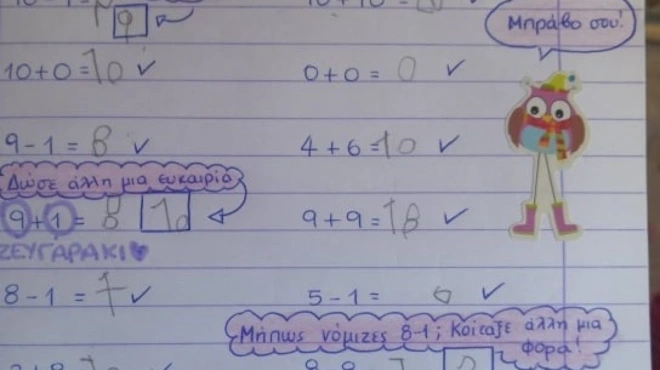 9
Μπράβο σου!
10+0=10 ✓ 0+0= 0 ✓
9-1= 8 ✓ 4+6=10 ✓
Δώσε άλλη μια ευκαιρία
9+1= 8 10 9+9=18 ✓
ΖΕΥΓΑΡΑΚΙ♥
8-1 =7 ✓ 5-1= ✓
Μήπως νόμιζες 8-1; Κοίταξε άλλη μια
φορά!